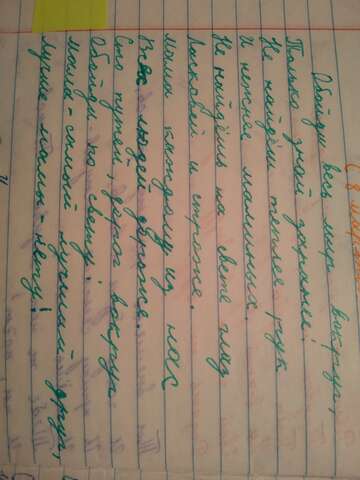 Обойди весь мир вокруг,
Только знай заранее:
Не найдёшь теплее рук
И нежнее маминых.
Не найдёшь на свете глаз
Ласковей и строже.
Мама каждому из нас
Всех людей дороже.
Сто путей, дорог вокруг
Обойди по свету:
Мама - самый лучший друг,
Лучше мамы - нету!